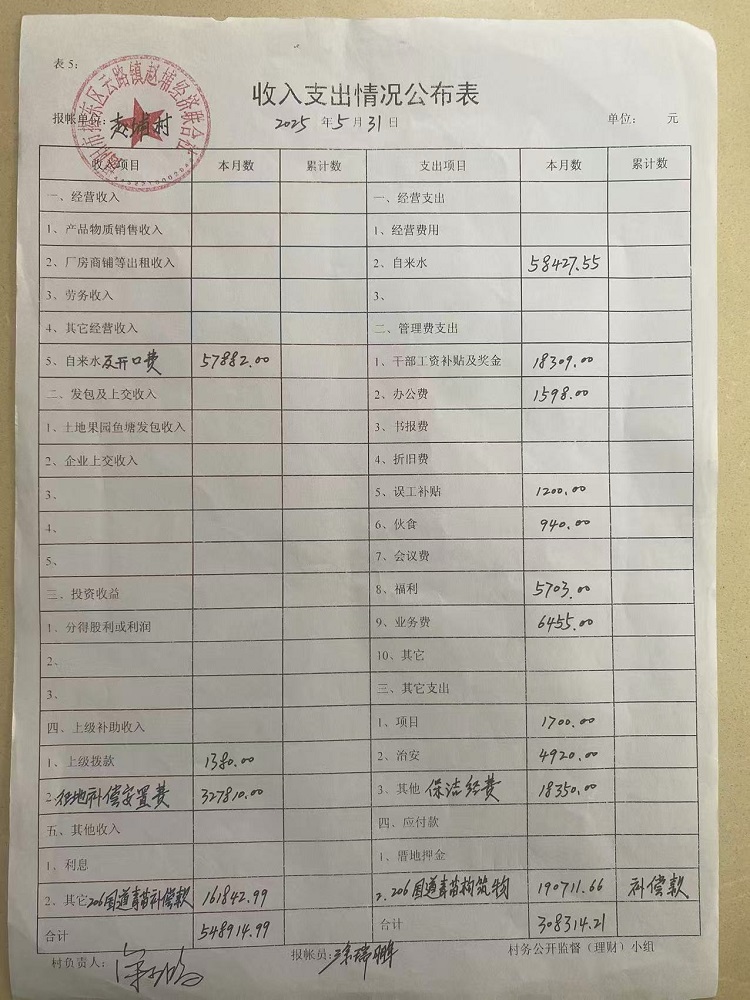 表 5:
收入支出情况公布表
报帐单位: 赵埔村 2025 年 5 月 31 日 单位: 元
收入项目 本月数 累计数 支出项目 本月数 累计数
一、经营收入 一、经营支出
1、产品物质销售收入 1、经营费用
2、厂房商铺等出租收入 2、自来水 58427.55
3、劳务收入 3、
4、其它经营收入 二、管理费支出
5、自来水及开口费 57882.00 1、干部工资补贴及奖金 18309.00
二、发包及上交收入 2、办公费 1598.00
1、土地果园鱼塘发包收入 3、书报费
2、企业上交收入 4、折旧费
3、 5、误工补贴 1200.00
4、 6、伙食 940.00
5、 7、会议费
三、投资收益 8、福利 5703.00
1、分得股利或利润 9、业务费 6455.00
2、 10、其它
3、 三、其它支出
四、上级补助收入 1、项目 1700.00
1、上级拨款 1380.00 2、治安 4920.00
2、征地补偿安置费 327810.00 3、其他 保洁经费 18350.00
五、其他收入 四、应付款
1、利息 1、暂地押金
2、其它 206国道青苗补偿款 161842.99 2、206国道青苗构筑物 190711.66 补偿款
合计 548914.99 合计 308314.21
村负责人: 报帐员: 涂瑞鹏 村务公开监督（理财）小组